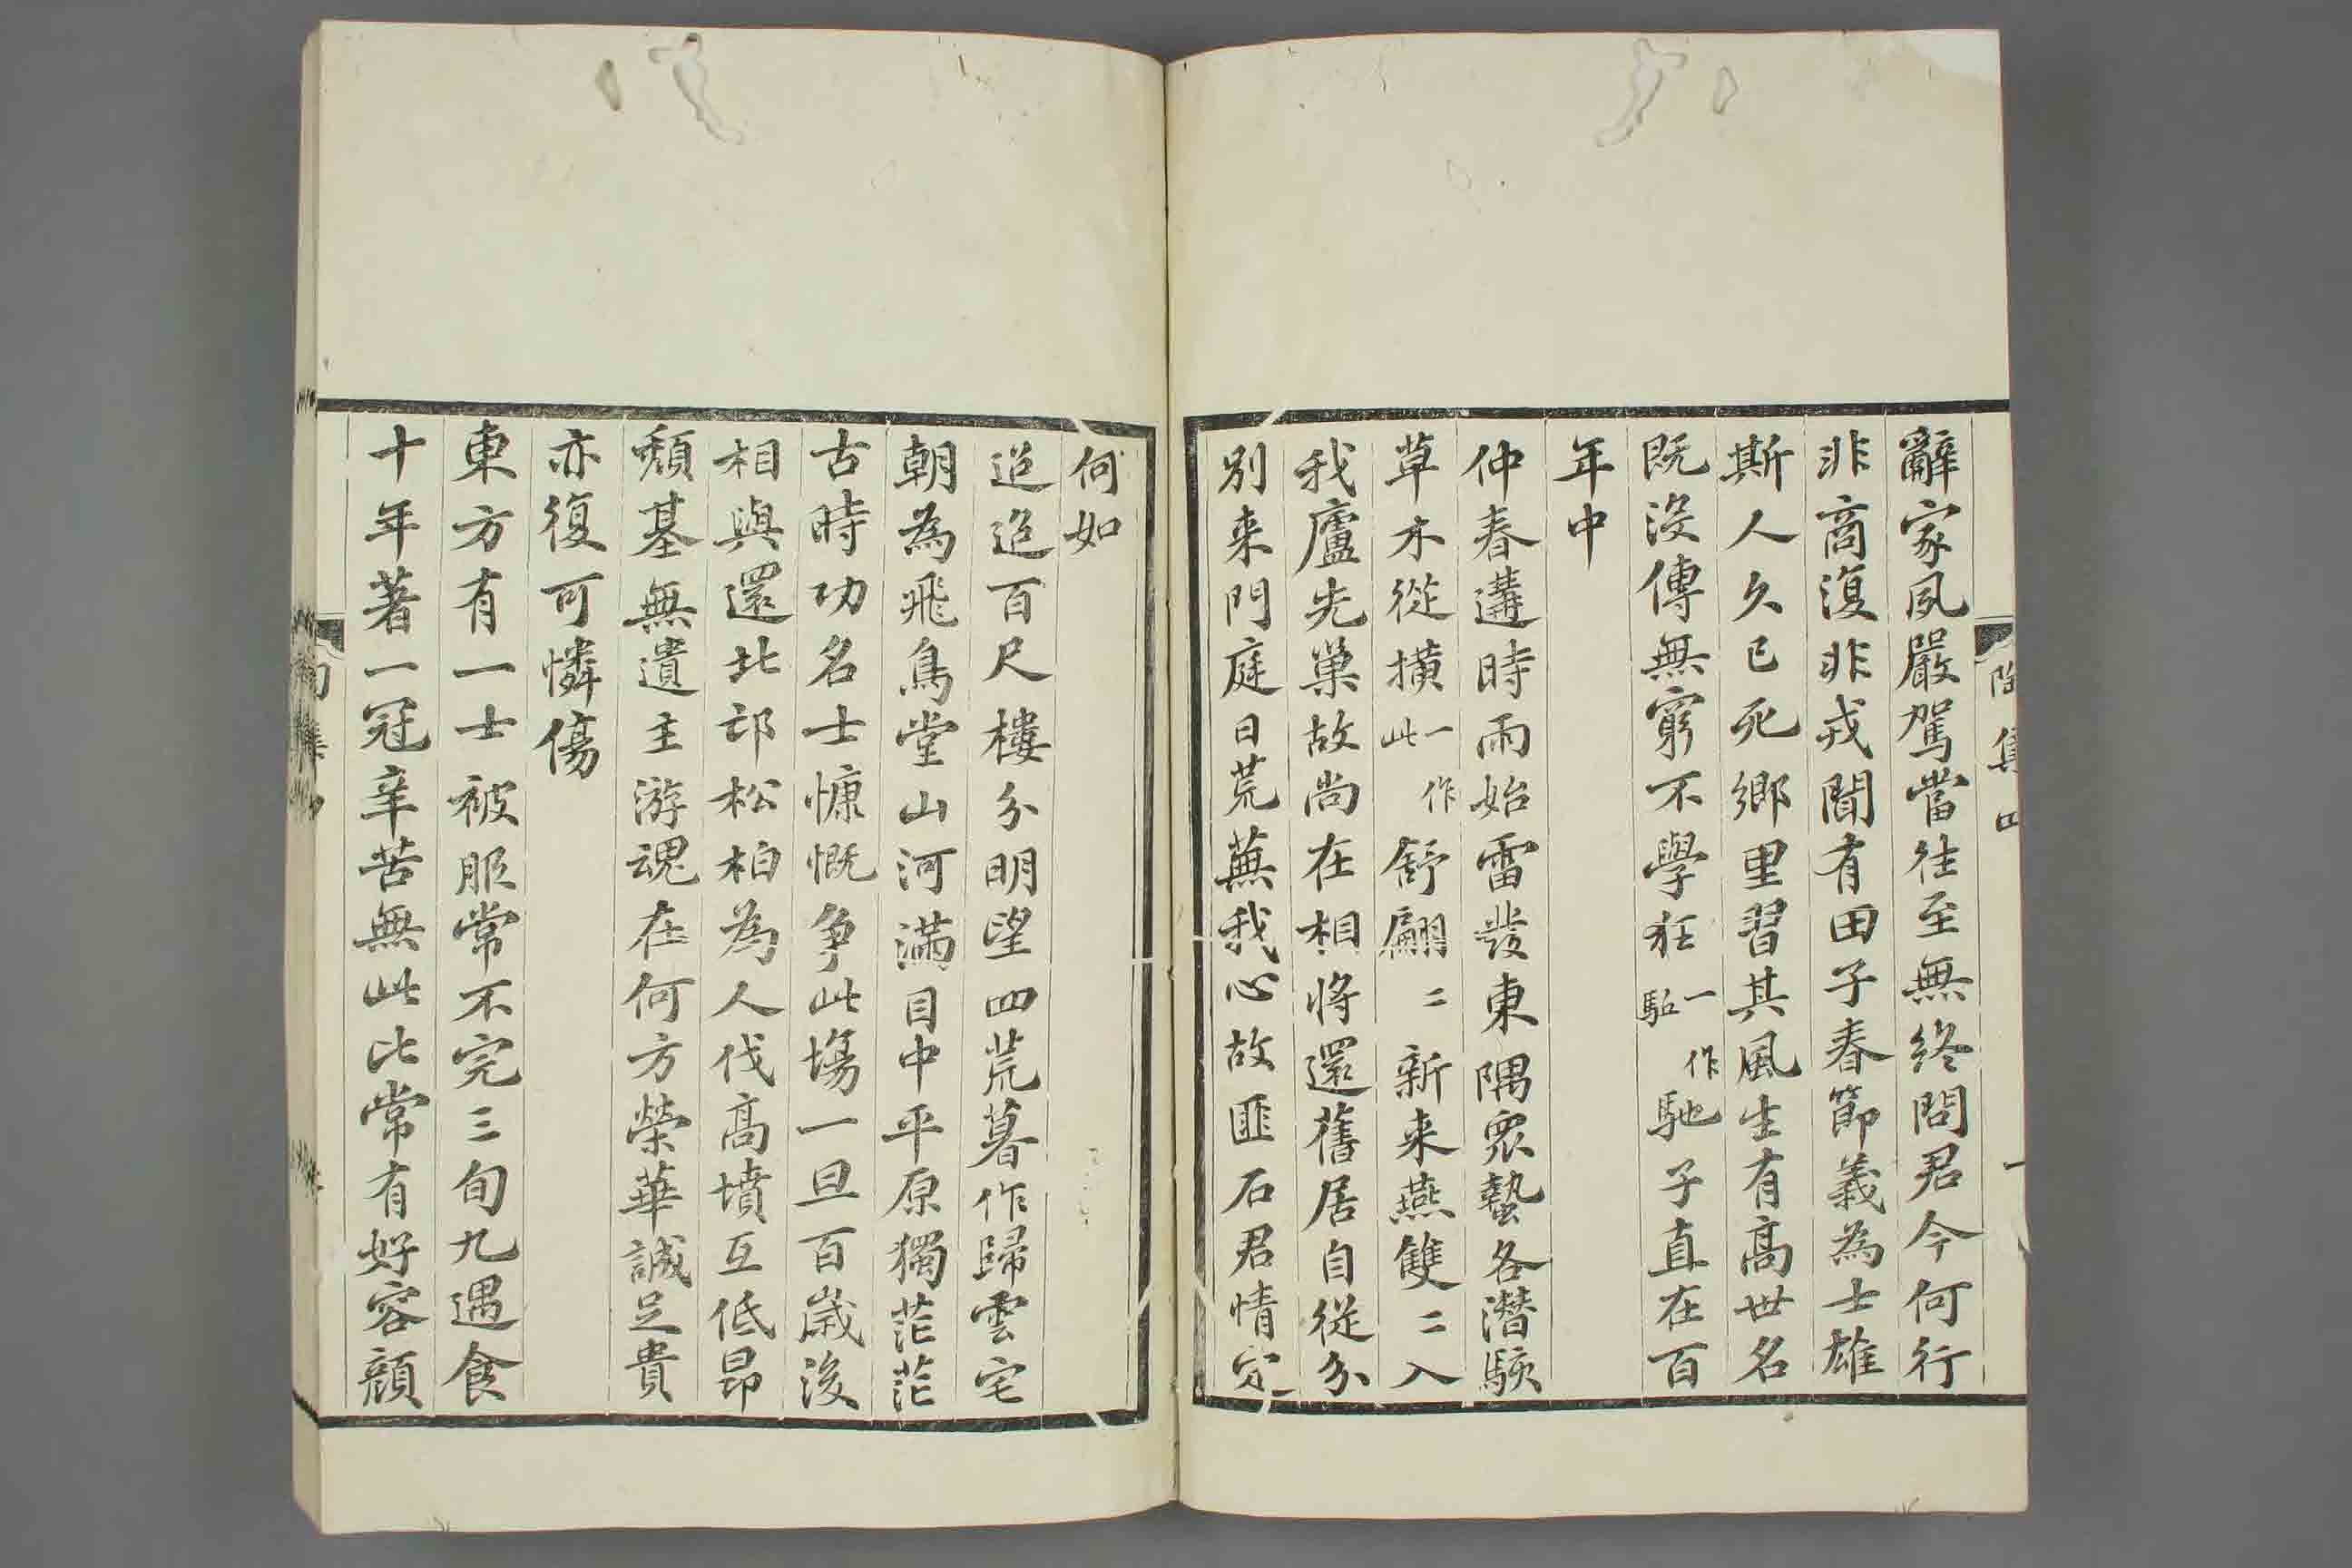 辭家夙嚴駕當往至無終問君今何行
非商復非戎聞有田子春節義為士雄
斯人久已死鄉里習其風生有高世名
既沒傳無窮不學狂一作駈馳子直在百
年中
仲春遘時雨始雷發東隅眾蟄各潛駭
草木從撗一作此舒翩〻新来燕雙〻入
我廬先巢故尚在相將還舊居自從分
別来門庭日荒蕪我心故匪石君情定
何如
迢迢百尺樓分明望四荒暮作歸雲宅
朝為飛鳥堂山河滿目中平原獨茫茫
古時功名士慷慨争此塲一旦百歲後
相與還北邙松柏為人伐高墳互低昂
頹基無遺主游魂在何方榮華誠足貴
亦復可憐傷
東方有一士被服常不完三旬九遇食
十年著一冠辛苦無此比常有好容顏
陶集四